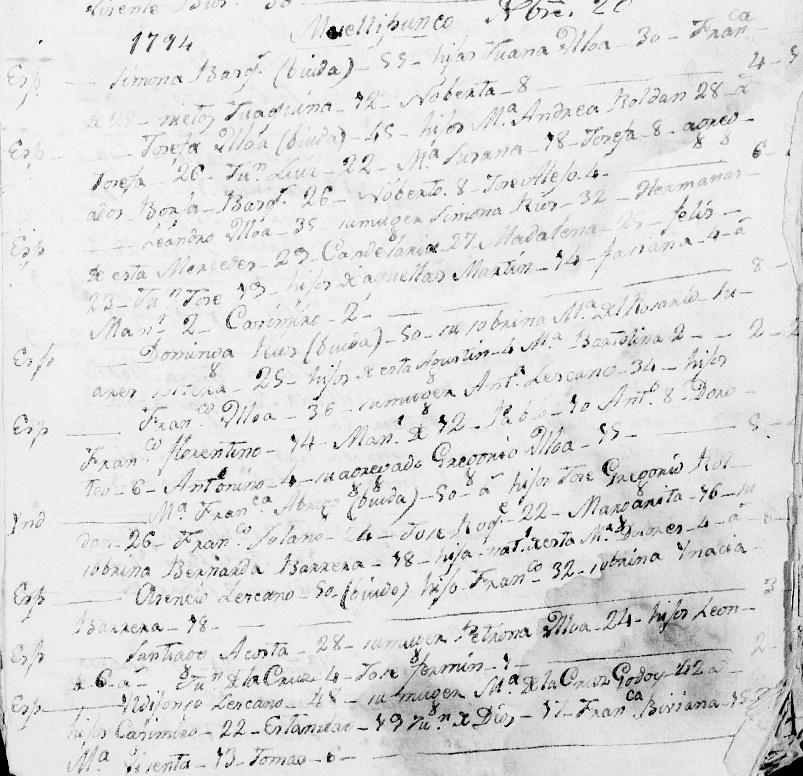 Vicente Rios. 30
1794 Muellipunco Nbre. 20
Esp. — Simona Barq.s (biuda) — 55 — hijos Juana Ulloa — 30 — Fran.ca
de 28 — nietos Juaquina — 12 — Noberta — 8 — 4 — 5
Esp — Josefa Ulloa (biuda) — 45 — hijos M.a Andrea Roldan 28 — a
Josefa — 26 — Ju.n Luis — 22 — M.a Susana — 18 — Josefa 8 — agreg
ados Borja — Barq.s 26 — Noberto. 8 — Jose Alejo 4 — 6
Esp — Leandro Ulloa — 35 — su muger Simona Rios — 32 — Hermanas
de esta Mercedes — 29 — Candelaria 27 Madalena — 25 — felis —
23 — Ju.n Jose 13 — hijos de aquellas Martin — 14 — Faciana — 4 — a
Man.l 2 — Casimiro — 2 — 8
Esp — Dominga Rios (biuda) — 50 — su sobrina M.a del Rosario — su
soltera — 25 — hijos de esta Agustin — 4 M.a Bartolina 2 — 2 — 2
Esp — Fran.co Ulloa — 36 — su muger Ant.a Lescano — 34 — hijos
Fran.co florentino — 14 — Man.l de 12 — Pablo — 10 Ant.o 8 — Doro
teo — 6 — Antonino — 4 — su agregado Gregorio Ulloa — 15 — 5
Ynd — M.a Fran.ca (biuda) — 50 — a hijos Jose Gregorio Rol
dan — 26 — Fran.co Solano — 24 — Jose 22 — Margarita — 16 — su
sobrina Bernarda Barrera — 18 — hija nat.l de esta M.a Dolores — 4 — a
Esp — Lescano — 50 — (biudo) hijo Fran.co 32 — sobrina Ynacia
Barrera — 18 — 3
Esp — Santiago Acosta — 28 — su muger Petrona Ulloa — 24 — hijos Leon
de 6 a Ju.n de la Cruz 4 — Jose fermin — 1 — 2
Esp — Yldifonso Lescano — 48 — su muger M.a de la Cruz Godoy — 42 a
hijos Casimiro — 22 — Estanislao — 19 Ju.n de Dios — 17 — Fran.ca Biviana — 15
M.a Vicenta — 13 — Tomas — 6 —